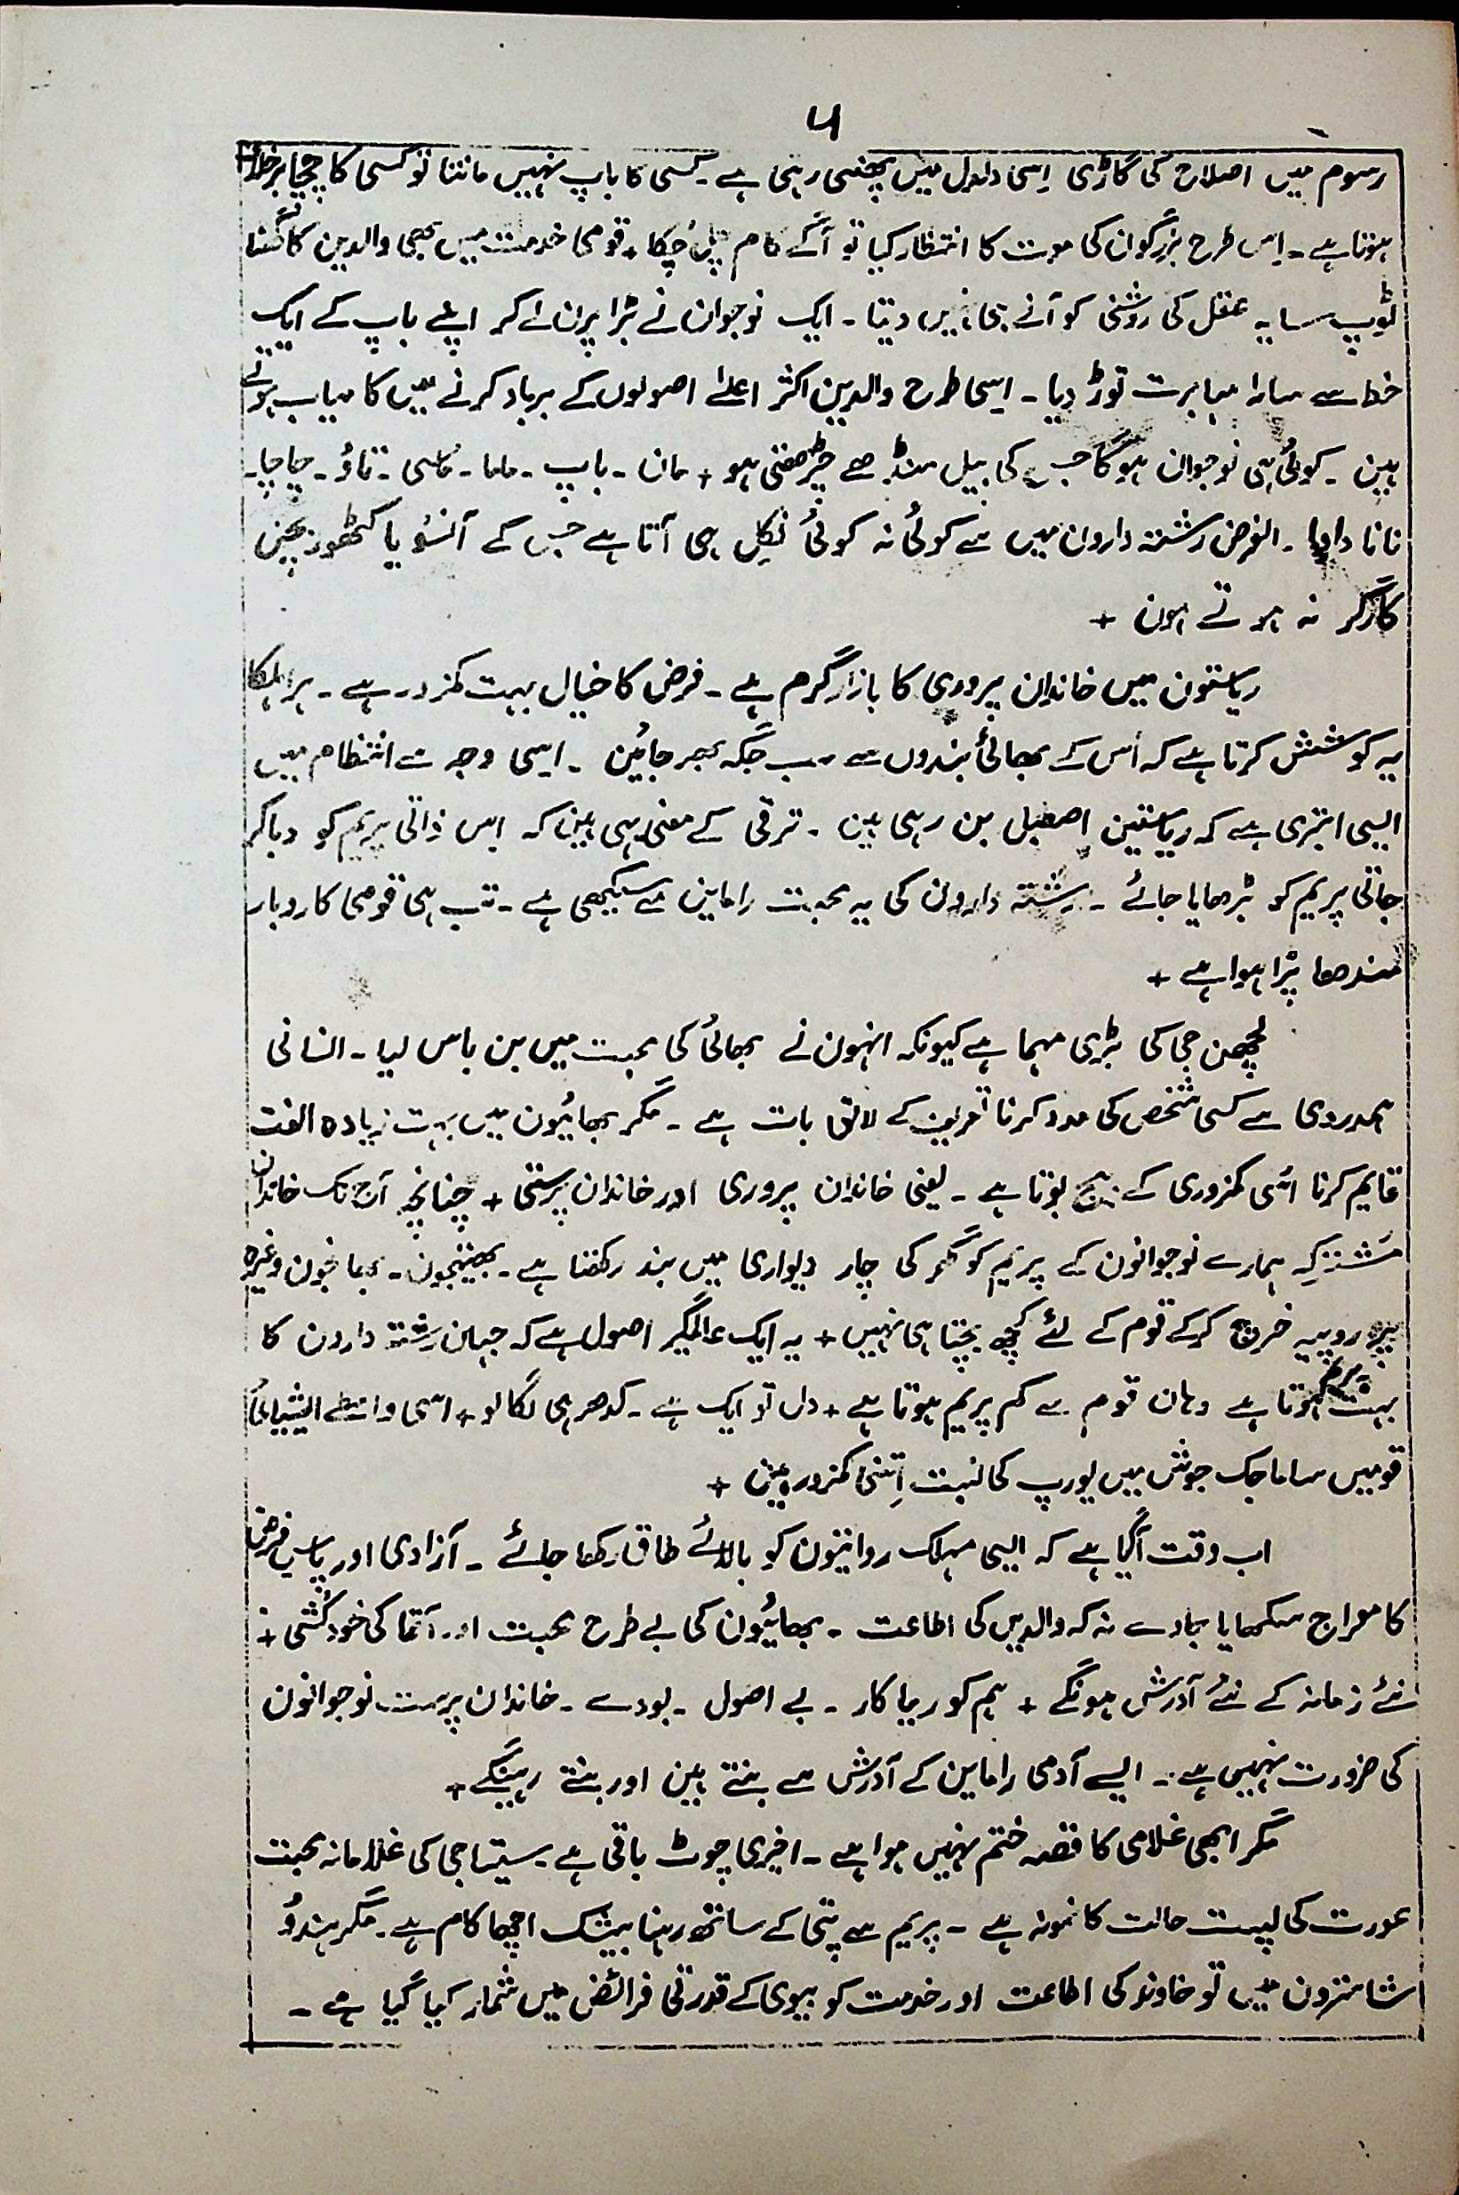 ۵
رسوم میں اصلاح کی گاڑی اِسی دلدل میں پھنسی رہتی ہے ۔ کسی کا باپ نہیں مانتا تو کسی کا چچا برخلاف
ہوتا ہے ۔ اِس طرح بزرگون کی موت کا انتظار کیا تو آگے کام چل چکا + قومی خدمت میں بھی والدین کا گھٹا
ٹوپ سایہ عقل کی روشنی کو آنے ہی نہیں دیتا ۔ ایک نوجوان نے بڑا پرن لے کر اپنے باپ کے ایک
خط سے سارا مہا برت توڑ دیا ۔ اسی طرح والدین اکثر اعلےٰ اصولوں کے برباد کرنے میں کامیاب ہوتے
ہین ۔ کوئی ہی نوجوان ہوگا جس کی بیل منڈھے چڑھتی ہو + مان ۔ باپ ۔ ماما ۔ ماسی ۔ تاؤ ۔ چاچا ۔
نانا دادا ۔ الغرض رشتہ دارون میں سے کوئی نہ کوئی نکل ہی آتا ہے جس کے آنسو یا کٹھور بچن
کارگر نہ ہوتے ہون +
ریاستون میں خاندان پروری کا بازار گرم ہے ۔ فرض کا خیال بہت کمزور ہے ۔ ہر اہلکار
یہ کوشش کرتا ہے کہ اُس کے بھائی بندوں سے سب جگہ بھر جائین ۔ اسی وجہ سے انتظام میں
ایسی ابتری ہے کہ ریاستین اصطبل بن رہی ہین ۔ ترقی کے معنی ہی ہین کہ اِس ذاتی پریم کو دباکر
جاتی پریم کو بڑھایا جائے ۔ رشتہ دارون کی یہ محبت راماین سے سیکھی ہے ۔ تب ہی قومی کاروبار
مندھا پڑا ہوا ہے +
لچھمن جی کی بڑی مہما ہے کیونکہ انہون نے بھائی کی محبت میں بن باس لیا ۔ انسانی
ہمدردی سے کسی شخص کی مدد کرنا تعریف کے لائق بات ہے ۔ مگر بھائیون میں بہت زیادہ الفت
قایم کرنا اسی کمزوری کے بیج بوتا ہے ۔ یعنی خاندان پروری اور خاندان پرستی + چنانچہ آج تک خاندان
مشترکہ ہمارے نوجوانون کے پریم کو گھر کی چار دیواری میں بند رکھتا ہے ۔ بھتیجون ۔ بھانجون وغیرہ
پر روپیہ خرچ کرکے قوم کے لئے کچھ بچتا ہی نہیں + یہ ایک عالمگیر اصول ہے کہ جہان رشتہ دارون کا
بہت پریم ہوتا ہے وہان قوم سے کم پریم ہوتا ہے + دل تو ایک ہے ۔ کدھر ہی لگا لو + اسی واسطے ایشیائی
قومیں ساماجک جوش میں یورپ کی نسبت اِتنی کمزور ہین +
اب وقت آگیا ہے کہ ایسی مہلک روایتون کو بالائے طاق رکھا جائے ۔ آزادی اور پاس فرض
کا معراج سکھایا جاوے نہ کہ والدین کی اطاعت ۔ بھائیون کی بے طرح محبت اور آتما کی خودکشی +
نئے زمانہ کے نئے آدرش ہونگے + ہم کو ریاکار ۔ بے اصول ۔ بودے ۔ خاندان پرست نوجوانون
کی ضرورت نہیں ہے ۔ ایسے آدمی راماین کے آدرش سے بنتے ہین اور بنتے رہینگے +
مگر ابھی غلامی کا قصہ ختم نہیں ہوا ہے ۔ اخیری چوٹ باقی ہے ۔ سیتا جی کی غلامانہ محبت
عورت کی پست حالت کا نمونہ ہے ۔ پریم سے پتی کے ساتھ رہنا بیشک اچھا کام ہے ۔ مگر ہندو
شاسترون میں تو خاوند کی اطاعت اور خدمت کو بیوی کے قدرتی فرائض میں شمار کیا گیا ہے ۔